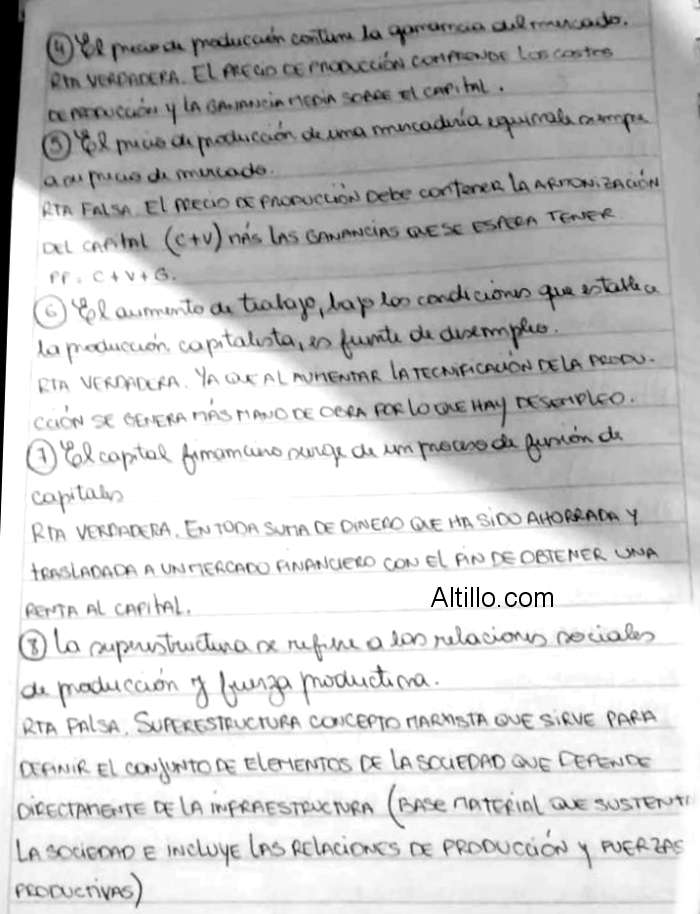 ④ El precio de producción contiene la ganancia del mercado.
RTA VERDADERA. EL PRECIO DE PRODUCCIÓN COMPRENDE LOS COSTOS
DE PRODUCCIÓN Y LA GANANCIA MEDIA SOBRE EL CAPITAL.
⑤ El precio de producción de una mercadería equivale siempre
a su precio de mercado.
RTA FALSA. EL PRECIO DE PRODUCCIÓN DEBE CONTENER LA ARMONIZACIÓN
DEL CAPITAL (C+V) MÁS LAS GANANCIAS QUE SE ESPERA TENER
PP. C+V+G.
⑥ El aumento de trabajo, bajo las condiciones que establece
la producción capitalista, es fuente de desempleo.
RTA VERDADERA. YA QUE AL AUMENTAR LA TECNIFICACIÓN DE LA PRODU-
CCIÓN SE GENERA MÁS MANO DE OBRA POR LO QUE HAY DESEMPLEO.
⑦ El capital financiero surge de un proceso de fusión de
capitales
RTA VERDADERA. EN TODA SUMA DE DINERO QUE HA SIDO AHORRADA Y
TRASLADADA A UN MERCADO FINANCIERO CON EL FIN DE OBTENER UNA
RENTA AL CAPITAL.
Altillo.com
⑧ La superestructura se refiere a las relaciones sociales
de producción y fuerza productiva.
RTA FALSA. SUPERESTRUCTURA CONCEPTO MARXISTA QUE SIRVE PARA
DEFINIR EL CONJUNTO DE ELEMENTOS DE LA SOCIEDAD QUE DEPENDE
DIRECTAMENTE DE LA INFRAESTRUCTURA (BASE MATERIAL QUE SUSTENTA
LA SOCIEDAD E INCLUYE LAS RELACIONES DE PRODUCCIÓN Y FUERZAS
PRODUCTIVAS)